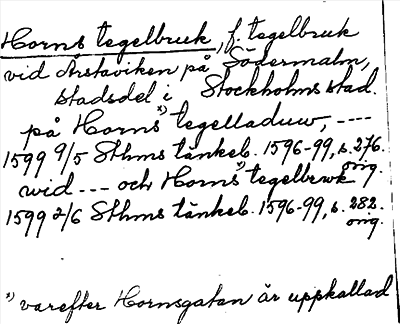 Horns tegelbruk, f. tegelbruk
vid Årstaviken på Södermalm,
stadsdel i Stockholms stad.
på Horns x) tegelladuw, ----
1599 9/5 Sthms tänkeb. 1596-99, s. 276. orig.
wid --- och Horns x) tegelbrwk
1599 2/6 Sthms tänkeb. 1596-99, s. 282. orig.
x) varefter Hornsgatan är uppkallad